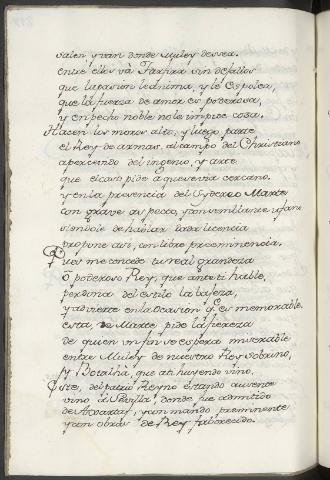 salen y van donde Muley dessea.
entre ellos và Tarfira sin dejallos
que la passion le anima, y le es polea,
que la fuerza de amor es poderosa,
y en pecho noble no le impide cosa.
Hacen los moros alto, y luego parte
el Rey de armas, al campo del Christiano
apercevido del ingenio, y arte
que el caso pide à que estava cercano.
y en la presencia del Gran Marte
con grave aspecto, y con semblante ufano
siendole de hablar dada licencia
propone assi, con libre preeminencia.
Pues me concede tu real grandeza
ò poderoso Rey, que ante ti hable,
perdona del estilo la baxeza,
y advierte en la ocasion q̃ es memorable.
esta, de Marte pide la fiereza
de quien un fin se espera miserable
entre Muley de nuestro Rey sobrino,
y Botalhà, que ati huyendo vino.
Este, del patrio Reyno estando ausente
vino à Sevilla, donde fue admitido
de y con mando preeminente
y con obras de Rey faborecido.